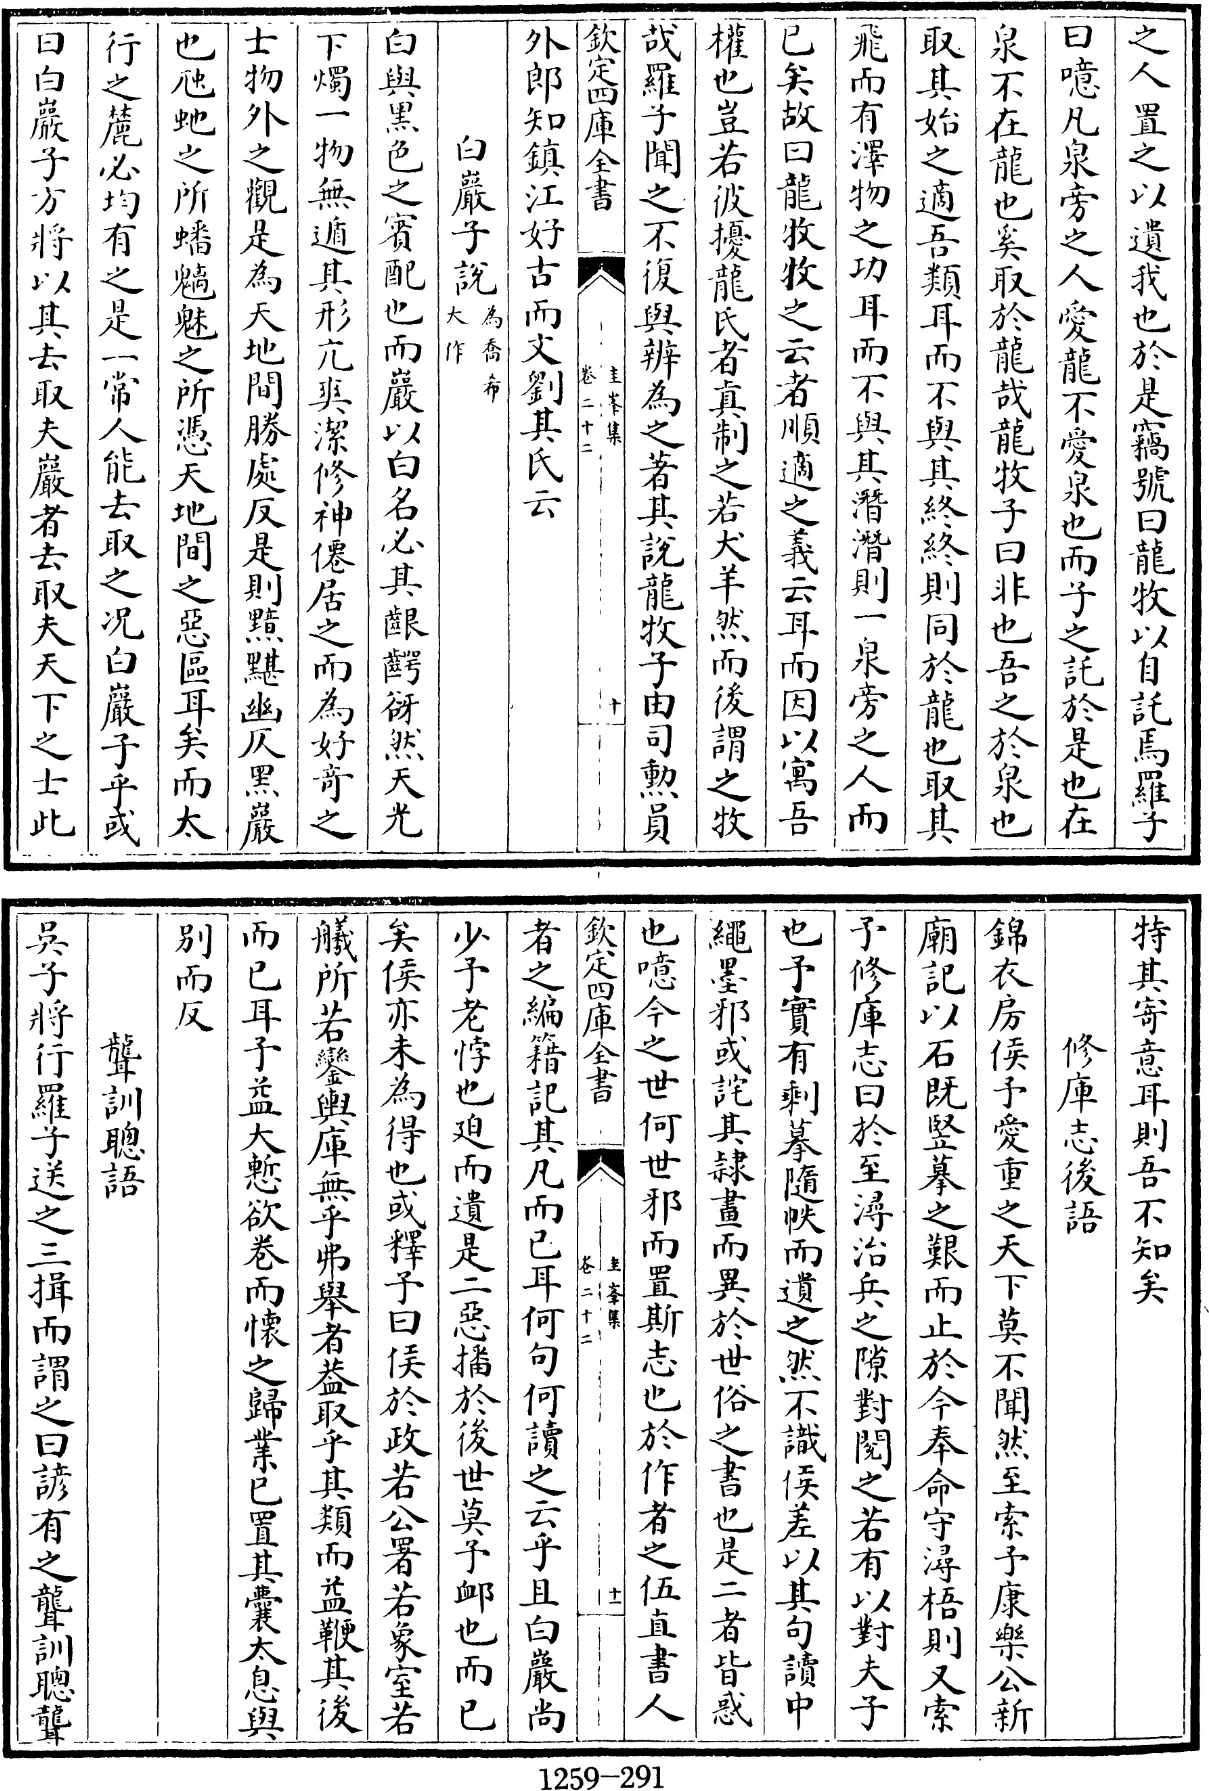 之人置之以遺我也於是竊號曰龍牧以自託焉羅子
曰噫凡泉旁之人愛龍不愛泉也而子之託於是也在
泉不在龍也奚取於龍哉龍牧子曰非也吾之於泉也
取其始之適吾類耳而不與其終終則同於龍也取其
飛而有澤物之功耳而不與其潛潛則一泉旁之人而
已矣故曰龍牧牧之云者順適之義云耳而因以寓吾
權也豈若彼擾龍氏者真制之若犬羊然而後謂之牧
哉羅子聞之不復與辨為之著其說龍牧子由司勲員
欽定四庫全書
圭峯集
卷二十二
十
外郎知鎮江好古而文劉其氏云
白巖子說為喬希
大作
白與黑色之賓配也而巖以白名必其齦齶谺然天光
下燭一物無遁其形亢爽潔修神僊居之而為好奇之
士物外之觀是為天地間勝處反是則黯黮幽仄黑巖
也虺虵之所蟠魑魅之所憑天地間之惡區耳矣而太
行之麓必均有之是一常人能去取之况白巖子乎或
曰白巖子方將以其去取夫巖者去取夫天下之士此
特其寄意耳則吾不知矣
修庫志後語
錦衣房侯予愛重之天下莫不聞然至索予康樂公新
廟記以石既竪摹之艱而止於今奉命守潯梧則又索
予修庫志曰於至潯治兵之隙對閱之若有以對夫子
也予實有剩摹隨帙而遺之然不識侯差以其句讀中
繩墨邪或詫其隷畫而異於世俗之書也是二者皆惑
也噫今之世何世邪而置斯志也於作者之伍直書人
欽定四庫全書
圭峯集
卷二十二
十一
者之編籍記其凡而已耳何句何讀之云乎且白巖尚
少予老悖也廹而遺是二惡播於後世莫予卹也而已
矣侯亦未為得也或釋予曰侯於政若公署若象室若
艤所若鑾輿庫無乎弗舉者葢取乎其類而益鞭其後
而已耳予益大慙欲卷而懷之歸業已置其囊太息與
別而反
聾訓聰語
吳子將行羅子送之三揖而謂之曰諺有之聾訓聰聾
1259-291